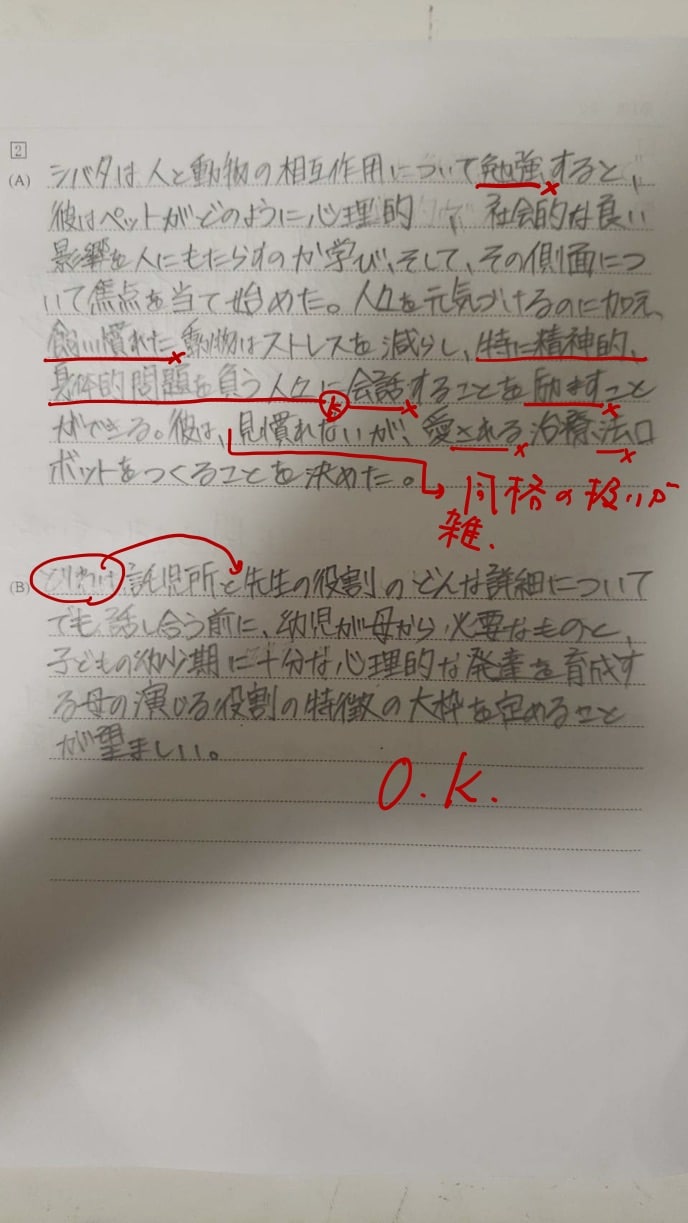 2
(A) シバタは人と動物の相互作用について勉強すると、
彼はペットがどのように心理的、社会的な良い
影響を人にもたらすのか学び、そして、その側面につ
いて焦点を当て始めた。人々を元気づけるのに加え、
飼い慣れた動物はストレスを減らし、特に精神的、
身体的問題を負う人々に会話することを励ますこと
ができる。彼は、見慣れないが、愛される治療法ロ
ボットをつくることを決めた。
同格の扱いが
雑.
(B) とりわけ託児所と先生の役割のどんな詳細について
でも話し合う前に、幼児が母から必要なものと、
子どもの幼少期に十分な心理的な発達を育成す
る母の演じる役割の特徴の大枠を定めること
が望ましい。
O.K.